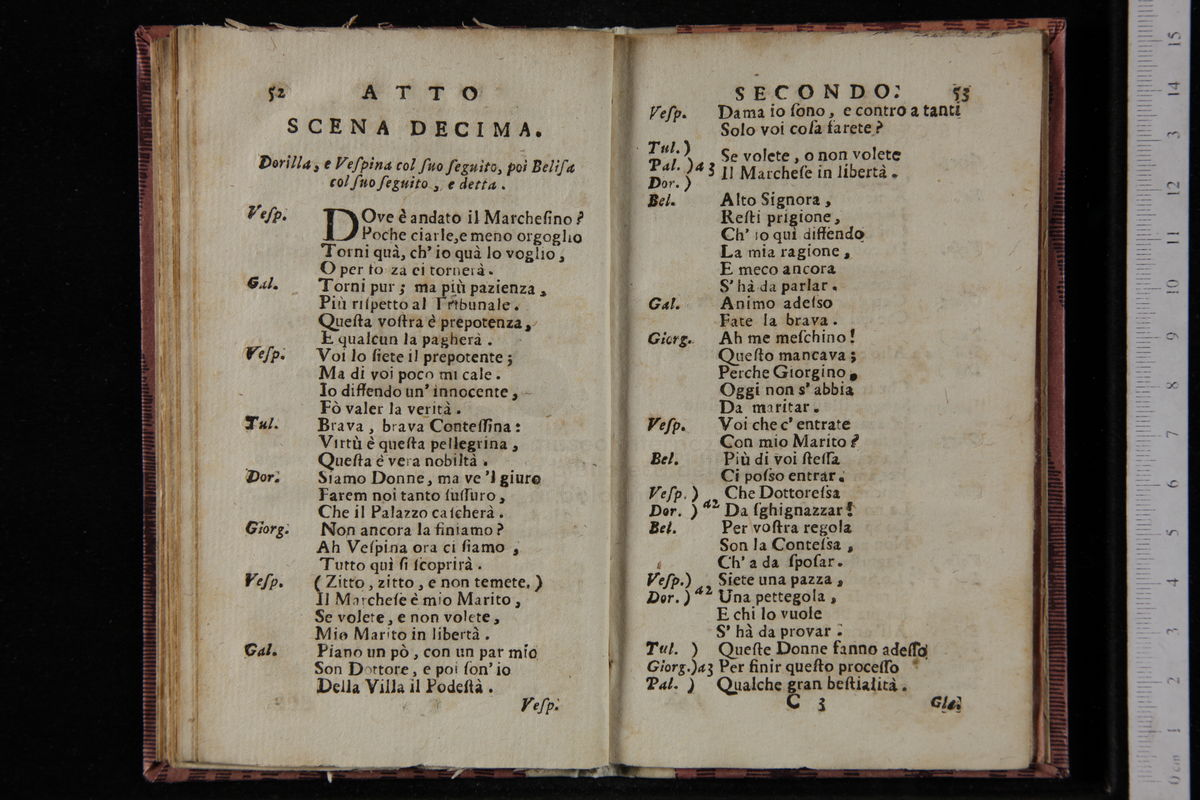 52 ATTO
SCENA DECIMA.
Dorilla, e Veſpina col ſuo ſeguito, poi Beliſa
col ſuo ſeguito, e detta.
Veſp. DOve è andato il Marcheſino?
Poche ciarle, e meno orgoglio
Torni quà, ch' io quà lo voglio,
O per fo za ci tornerà.
Gal. Torni pur; ma più pazienza,
Più riſpetto al Tribunale.
Queſta voſtra è prepotenza,
E qualcun la pagherà.
Veſp. Voi lo ſiete il prepotente;
Ma di voi poco mi cale.
Io diffendo un' innocente,
Fò valer la verità.
Tul. Brava, brava Conteſſina:
Virtù è queſta pellegrina,
Queſta è vera nobiltà.
Dor. Siamo Donne, ma ve 'l giuro
Farem noi tanto ſuſſuro,
Che il Palazzo caſcherà.
Giorg. Non ancora la finiamo?
Ah Veſpina ora ci ſiamo,
Tutto quì ſi ſcoprirà.
Veſp. (Zitto, zitto, e non temete.)
Il Marcheſe è mio Marito,
Se volete, e non volete,
Mio Marito in libertà.
Gal. Piano un pò, con un par mio
Son Dottore, e poi ſon' io
Della Villa il Podeſtà.
Veſp.
SECONDO. 53
Veſp. Dama io ſono, e contro a tanti
Solo voi coſa farete?
Tul. )
Pal. )a 3 Se volete, o non volete
Dor. ) Il Marcheſe in libertà.
Bel. Alto Signora,
Reſti prigione,
Ch' io quì diffendo
La mia ragione,
E meco ancora
S' hà da parlar.
Gal. Animo adeſso
Fate la brava.
Giorg. Ah me meſchino!
Queſto mancava;
Perche Giorgino,
Oggi non s' abbia
Da maritar.
Veſp. Voi che c' entrate
Con mio Marito?
Bel. Più di voi ſteſſa
Ci poſso entrar.
Veſp. ) a2 Che Dottoreſsa
Dor. ) Da ſghignazzar!
Bel. Per voſtra regola
Son la Conteſsa,
Ch' a da ſpoſar.
Veſp.) a2 Siete una pazza,
Dor. ) Una pettegola,
E chi lo vuole
S' hà da provar.
Tul. ) Queſte Donne fanno adeſſo
Giorg.)a3 Per finir queſto proceſſo
Pal. ) Qualche gran beſtialità.
C 3 Gla.